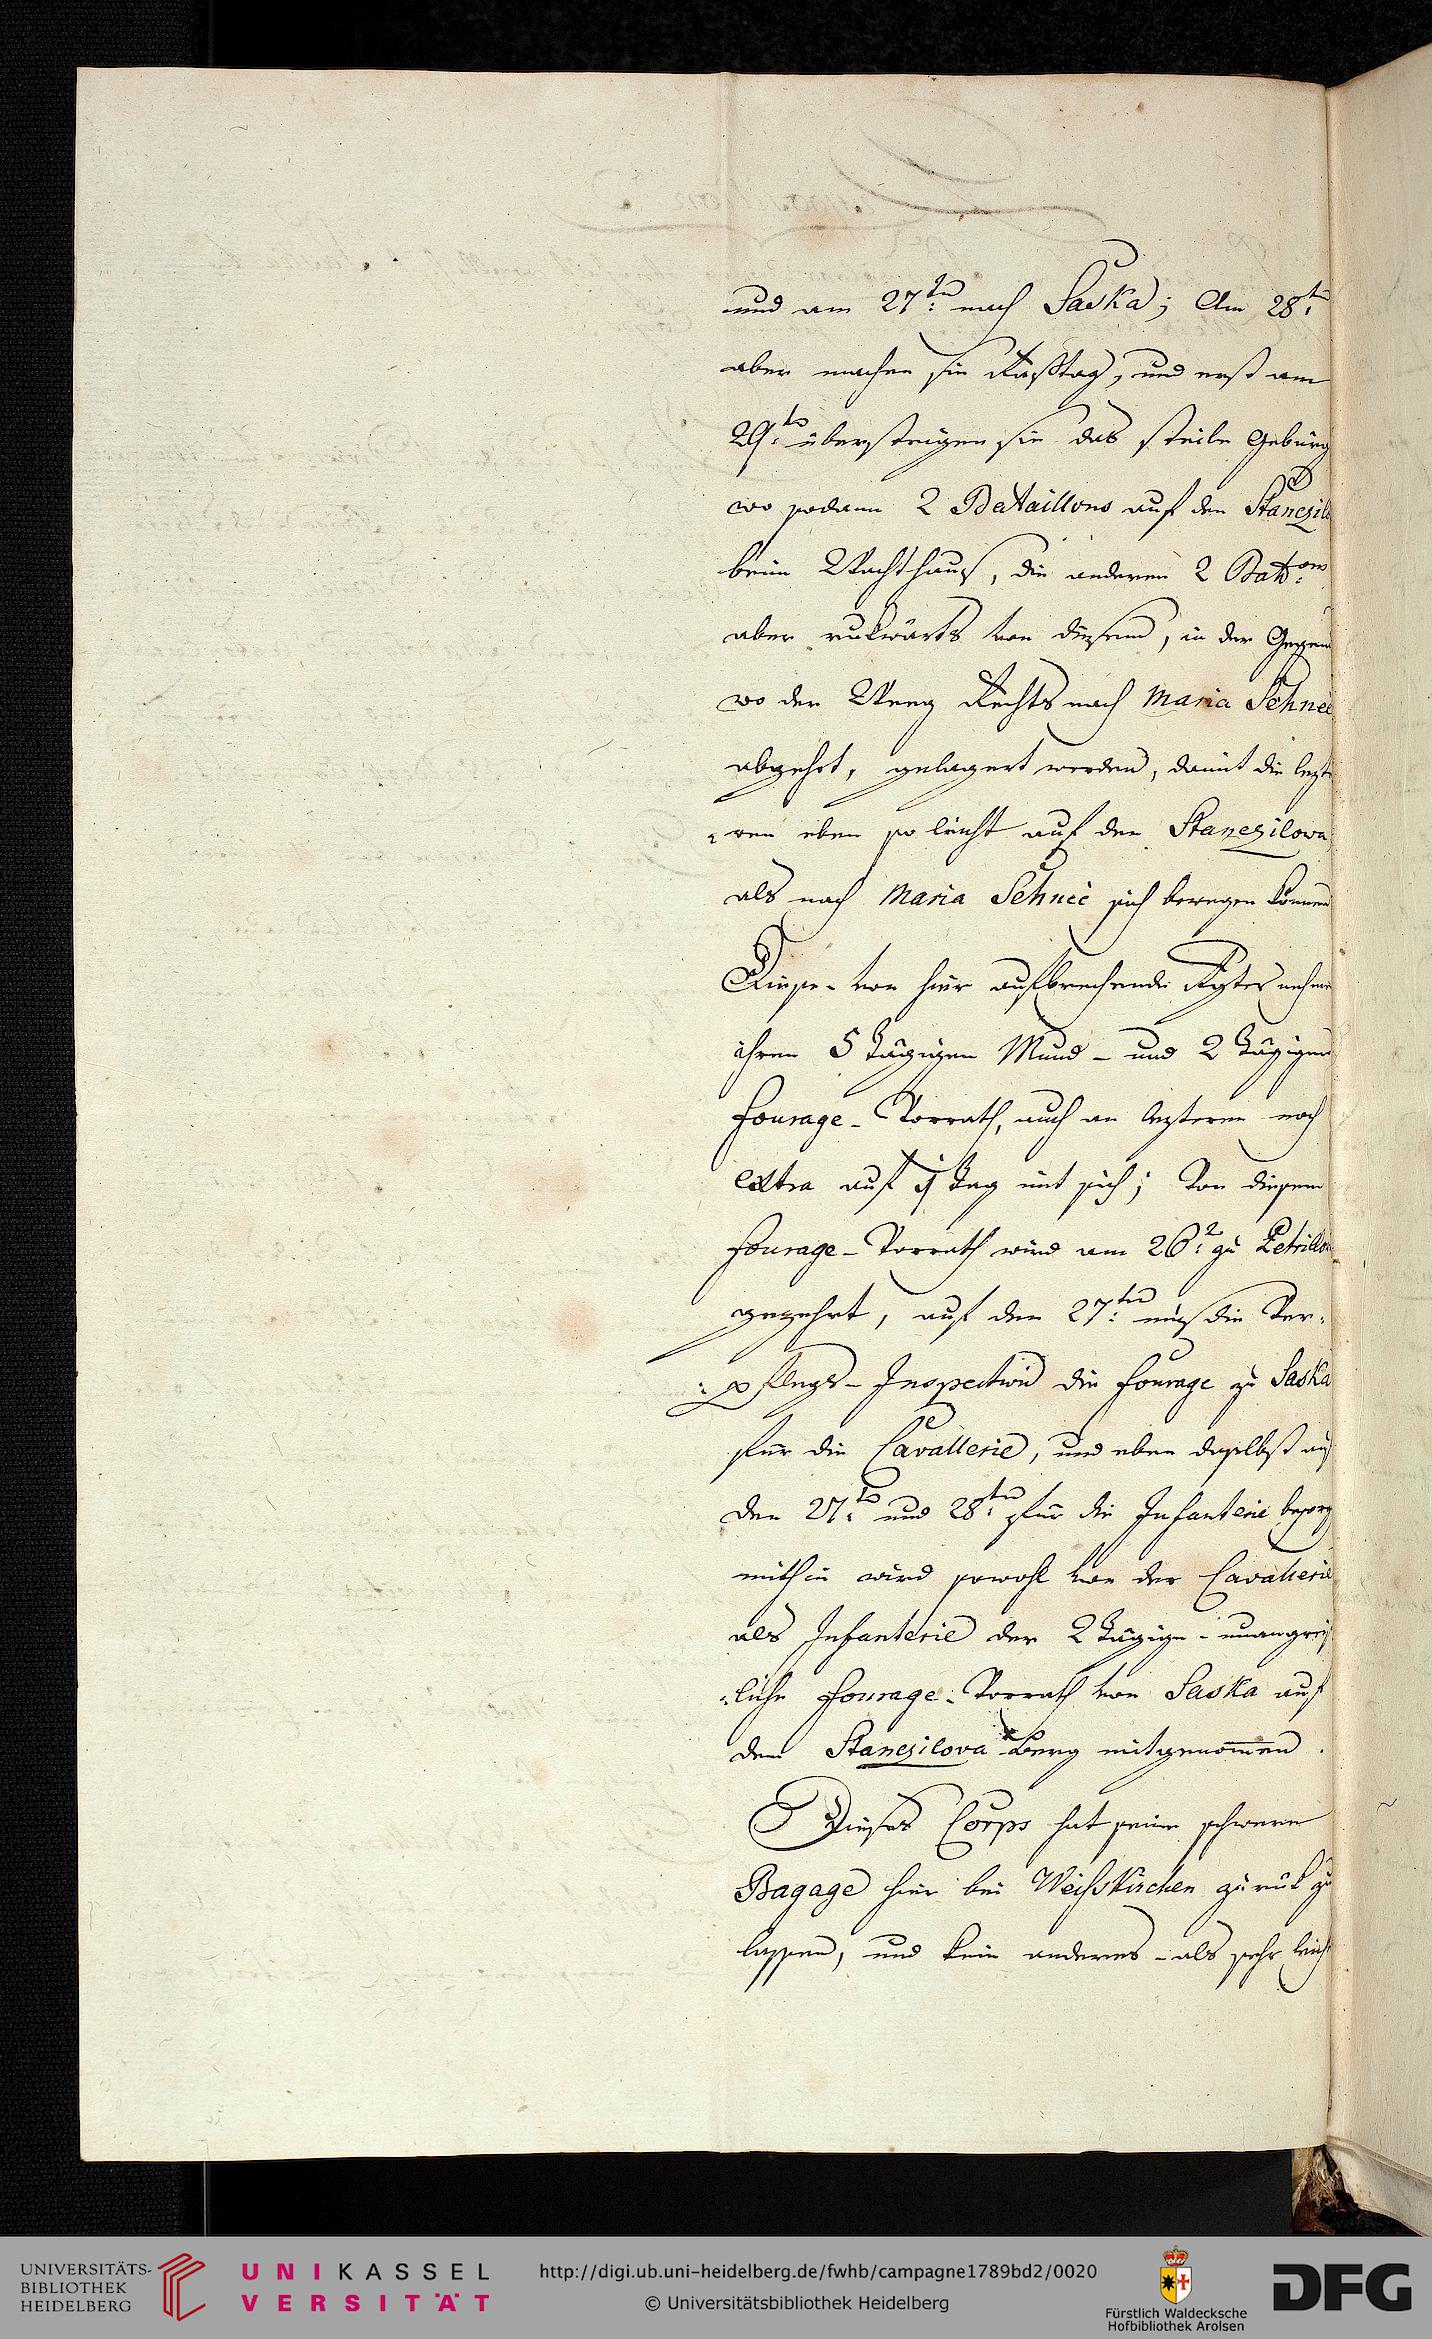 und am 27ten nach Saska; Am 28ten
aber machen sie Rasttag, und erst am
29ten übersteigen sie das steile Gebürg
wo sodann 2 Bataillons auf den Stanesil
beim Wachthaus, die anderen 2 Batons
aber rukwärts von diesem, in der Gegend
wo der Weeg Rechts nach Maria Schneé
abgehet, gelagert werden, damit die lezte
ren eben so leicht auf den Stanesilova
als nach Maria Schneé sich bewegen können
Diese von hier aufbrechende Rgter nehmen
ihren 5 tägigen Mund- und 2 tägigen
Fourage-Vorrath, auch an lezteren noch
extra auf 1 Tag mit sich; Von diesem
Fourage-Vorrath wird am 26. zu Petrillo
gezehrt, auf den 27ten muß die Ver-
pflegs-Inspection die Fourage zu Saska
für die Cavallerie, und eben daselbst auf
den 27ten und 28ten für die Infanterie besorg
mithin wird sowohl von der Cavallerie
als Infanterie der 2 tägige - unangreif
liche Fourage-Vorrath von Saska auf
den Stanesilova Berg mitgenommen.
Dieses Corps hat seine schwere
Bagage hier bei Weisskirchen zurük zu
lassen, und kein anderes - als sehr leicht
UNIVERSITÄTS-
BIBLIOTHEK
HEIDELBERG
UNIKASSEL
VERSITÄT
http://digi.ub.uni-heidelberg.de/fwhb/campagne1789bd2/0020
© Universitätsbibliothek Heidelberg
Fürstlich Waldecksche
Hofbibliothek Arolsen
DFG